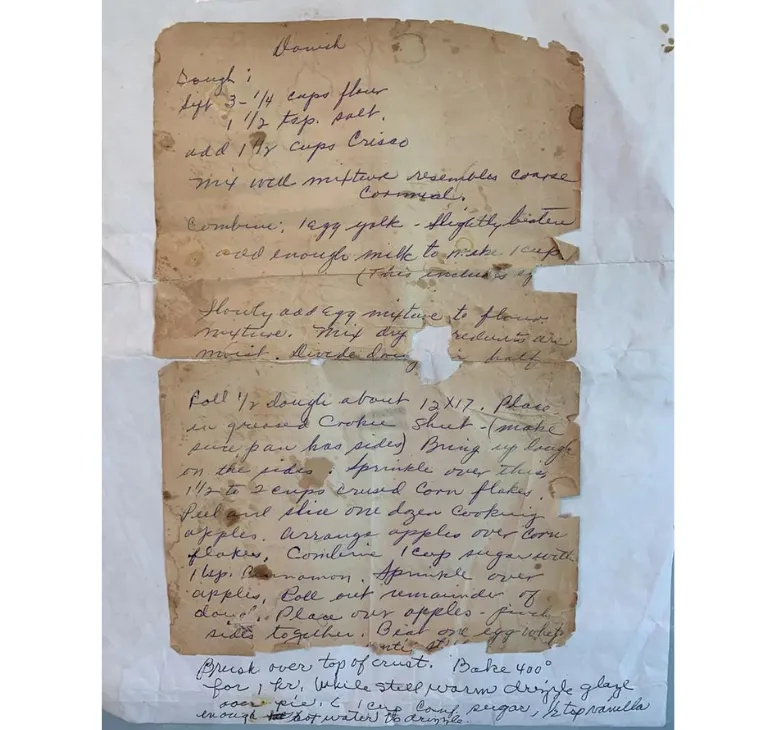 Danish
Dough:
Sift 3-1/4 cups flour
1 1/2 tsp. salt.
add 1 1/2 cups Crisco
Mix well mixture resembles coarse
Cornmeal.
Combine: 1 egg yolk - Slightly beaten
add enough milk to make 1 cup
(This includes eg
Slowly add Egg mixture to flour
mixture. Mix dry redients are
moist. Divide Doug in half
Roll 1/2 dough about 12X17. Place
in greased Cookie Sheet - (make
sure pan has sides) Bring up dough
on the sides. Sprinkle over this,
1 1/2 to 2 cups crused Corn flakes.
Peel and slice one dozen Cooking
apples. Arrange apples over Corn
flakes. Combine 1 cup sugar with
1 tsp. Cinnamon. Sprinkle over
apples. Roll out remainder of
Place over apples - pinch
sides together. Beat one egg white
Brush over top of crust. Bake 400°
for 1 hr. While still warm drizzle glaze
over pie. 1 cup Conf. sugar, 1/2 tsp vanilla
enough hot water to drizzle.